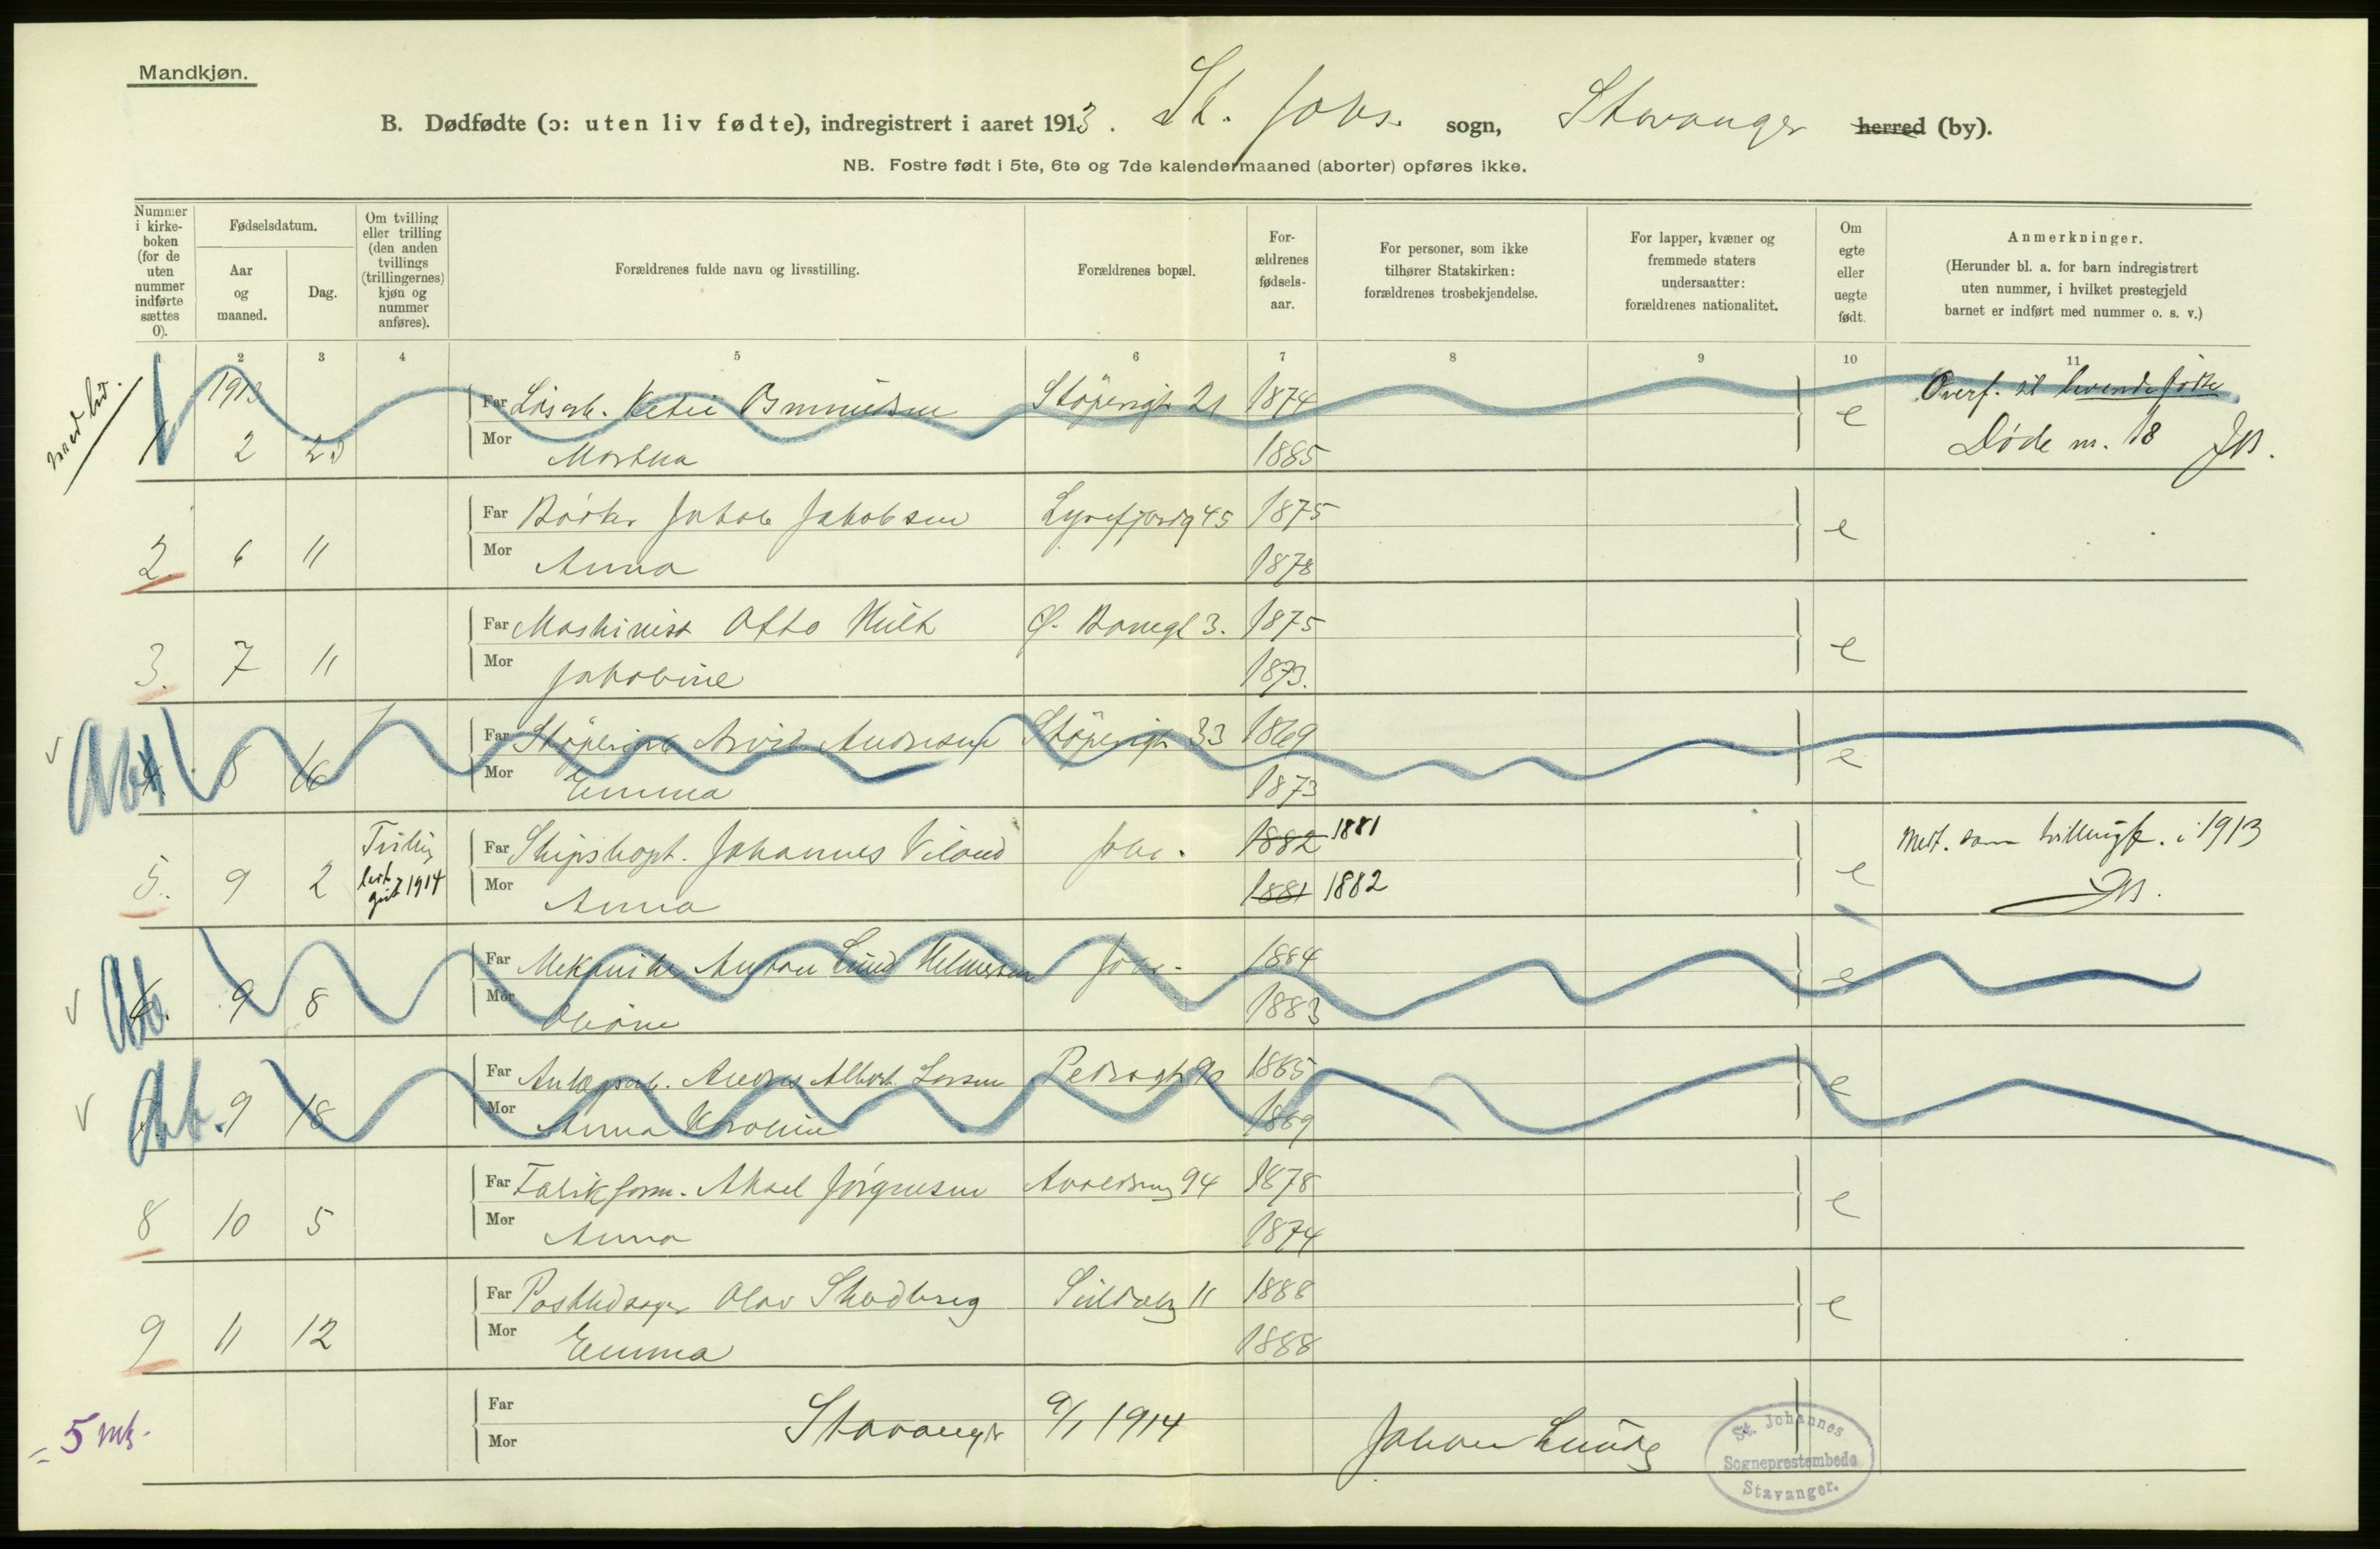 Mandkjøn.
B. Dødfødte (ɔ: uten liv fødte), indregistrert i aaret 1913. St. Johs. sogn, Stavanger herred (by).
NB. Fostre født i 5te, 6te og 7de kalendermaaned (aborter) opføres ikke.
Nummer i kirkeboken (for de uten nummer indførte sættes 0).
Fødselsdatum.
Aar og maaned.
Dag.
Om tvilling eller trilling (den anden tvillings (trillingernes) kjøn og nummer anføres).
Forældrenes fulde navn og livsstilling.
Forældrenes bopæl.
Forældrenes fødselsaar.
For personer, som ikke tilhører Statskirken: forældrenes trosbekjendelse.
For lapper, kvæner og fremmede staters undersaatter: forældrenes nationalitet.
Om egte eller uegte født.
Anmerkninger.
(Herunder bl. a. for barn indregistrert uten nummer, i hvilket prestegjeld barnet er indført med nummer o. s. v.)
1 2 3 4 5 6 7 8 9 10 11
1913
Far Løsarb. Stöperigt 21 1874 e Overf. til levende fødte
1 2 Mor Martha 1885 Døde m. 18 JB.
Far Jakob Jakobsen Lysefjordg 45 1875 e
2. 6 11 Mor Anna 1878
Far Maskinist Otto Ø. Banegt 3. 1875 e
3. 7 11 Mor Jakobine 1873.
Ab
Far Andresen Stöperigt 33 1869 e
4. 8 16 Mor Emma 1873
Tvilling
Far Skipskapt. Johannes Viland Johs. 1882 1881 e Medt. som tvillingf. i 1913
5. 9 2 1914 Mor Anna 1881 1882 JB.
Ab.
Far Mekaniker Anton Lund Johs. 1884 e
6. 9 8 Mor 1883
Ab.
Far Andreas Albert Larsen Pedersgt 90 1865 e
9 18 Mor Anna Karoline 1869
Far Fabrikform. Aksel Jörgensen Avaldsnesg 94 1878 e
8 10 5 Mor Anna 1874
Far Postbud Olav Suldalsg 11 1888 e
9 11 12 Mor Emma 1888
Far
Mor
Stavanger 9/1 1914
= 5 mk.
St. Johannes
Sogneprestembede
Stavanger.